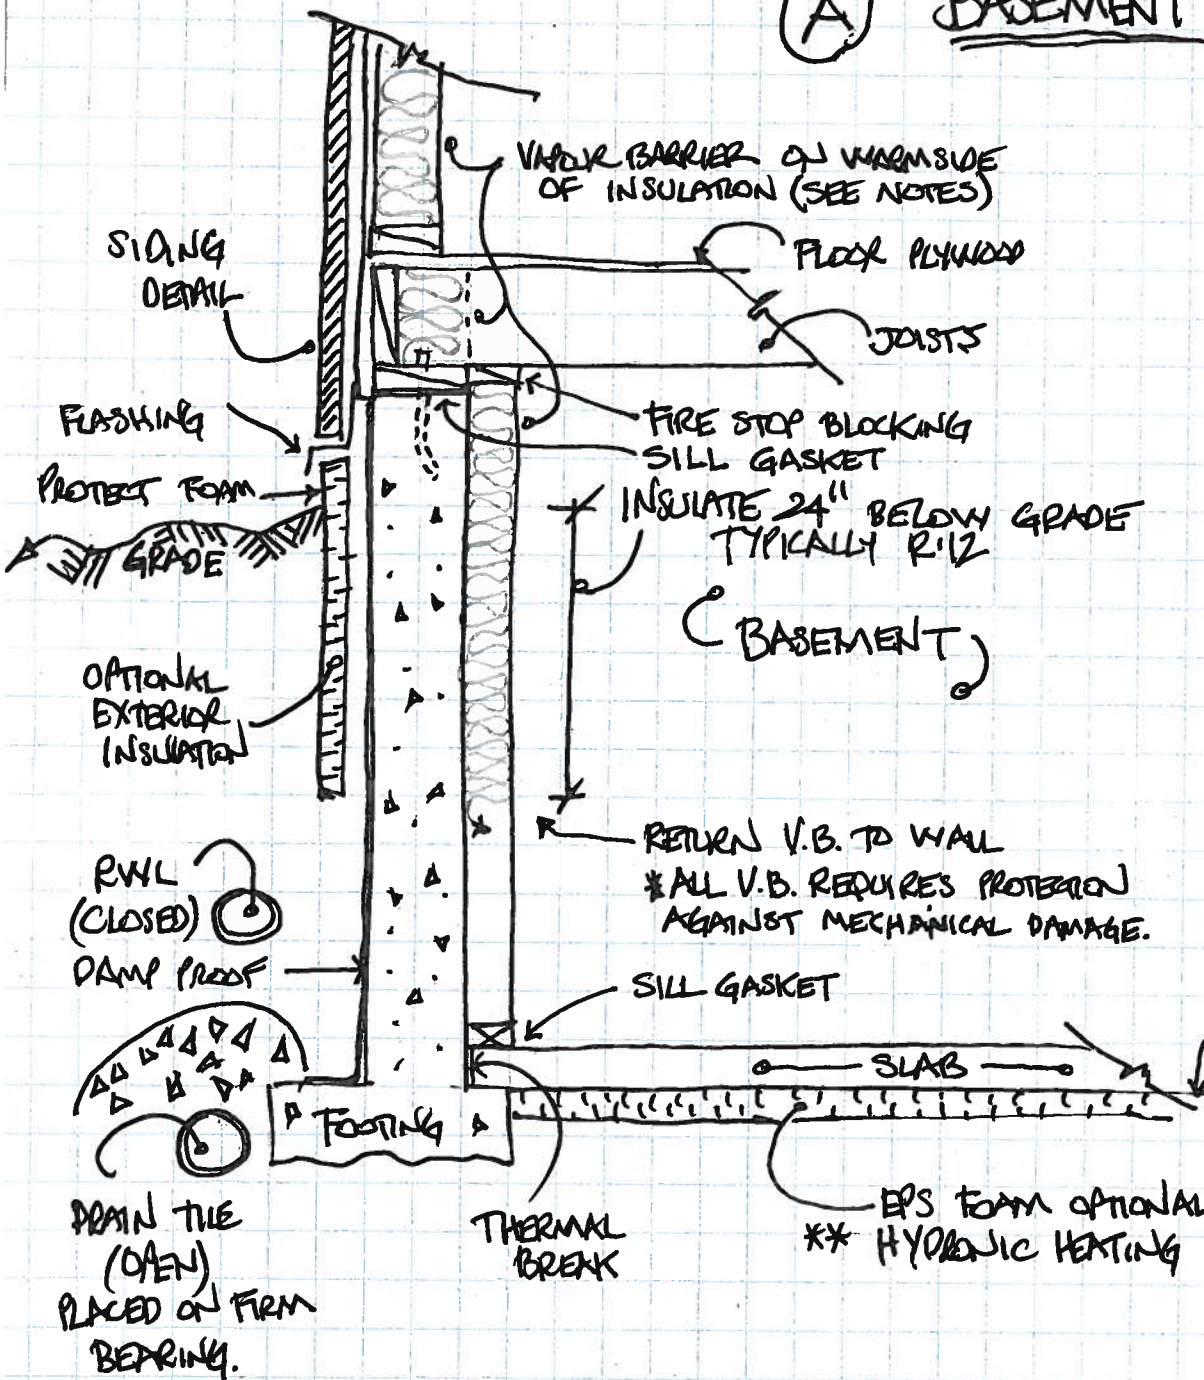 A BASEMENT
VAPOUR BARRIER ON WARM SIDE
OF INSULATION (SEE NOTES)
SIDING
DETAIL
FLOOR PLYWOOD
JOISTS
FLASHING
FIRE STOP BLOCKING
SILL GASKET
PROTECT FOAM
INSULATE 24" BELOW GRADE
TYPICALLY R.12
GRADE
BASEMENT
OPTIONAL
EXTERIOR
INSULATION
RETURN V.B. TO WALL
*ALL V.B. REQUIRES PROTECTION
AGAINST MECHANICAL DAMAGE.
RWL
(CLOSED)
DAMP PROOF
SILL GASKET
SLAB
FOOTING
DRAIN TILE
(OPEN)
PLACED ON FIRM
BEARING.
THERMAL
BREAK
EPS FOAM OPTIONAL
** HYDRONIC HEATING